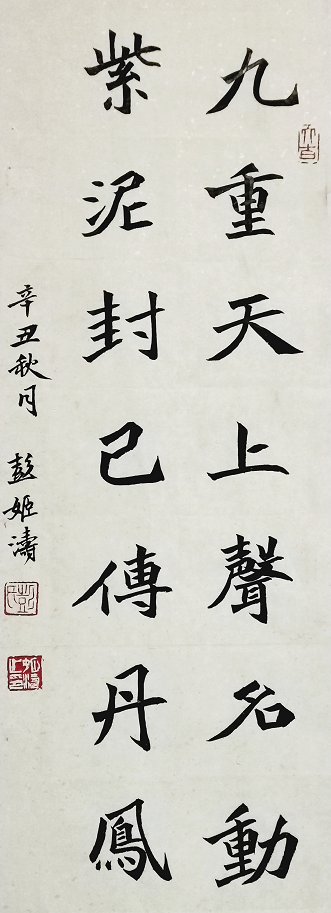 九重天上聲名動
紫泥封已傳丹鳳
辛丑秋月 彭姬濤